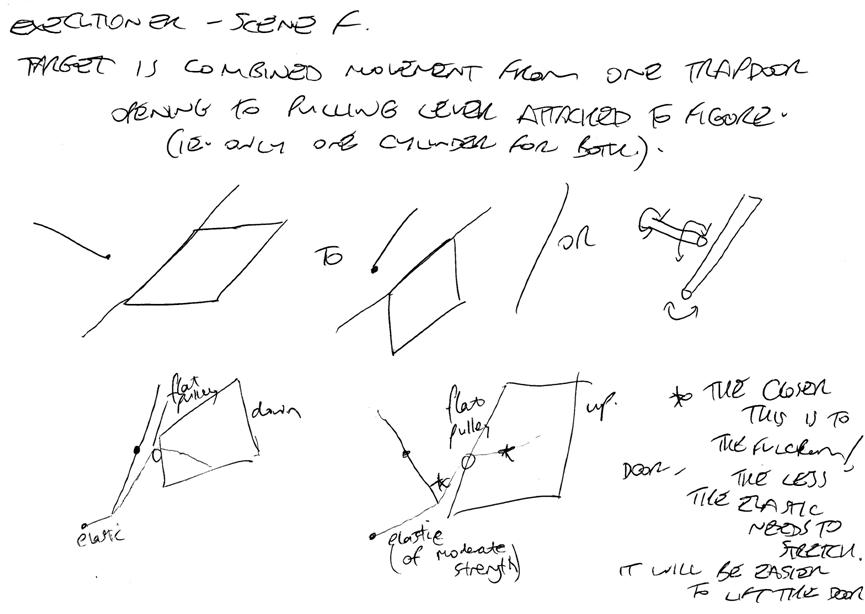 EXECUTIONER - SCENE F.
TARGET IS COMBINED MOVEMENT FROM ONE TRAPDOOR
OPENING TO PULLING LEVER ATTACHED TO FIGURE.
(IE. ONLY ONE CYLINDER FOR BOTH.).
TO
OR
flat
pulley
down
elastic
flat
pulley
up.
elastic
(of moderate
strength)
* THE CLOSER
THIS IS TO
THE FULCRUM/
DOOR, THE LESS
THE ELASTIC
NEEDS TO
STRETCH.
IT WILL BE EASIER
TO LIFT THE DOOR